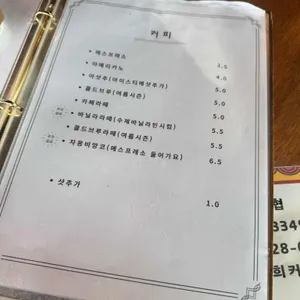 커 피
• 에스프레소 3.5
• 아메리카노 4.0
• 아샷추(아이스티에샷추가) 5.0
• 콜드브루(여름시즌) 5.0
• 카페라떼 5.0
• 바닐라라떼(수제바닐라빈시럽) 5.5
• 콜드브루라떼(여름시즌) 5.5
• 자몽비앙코(에스프레소 들어가요) 6.5
• 샷추가 1.0
협
334
28-0
희커